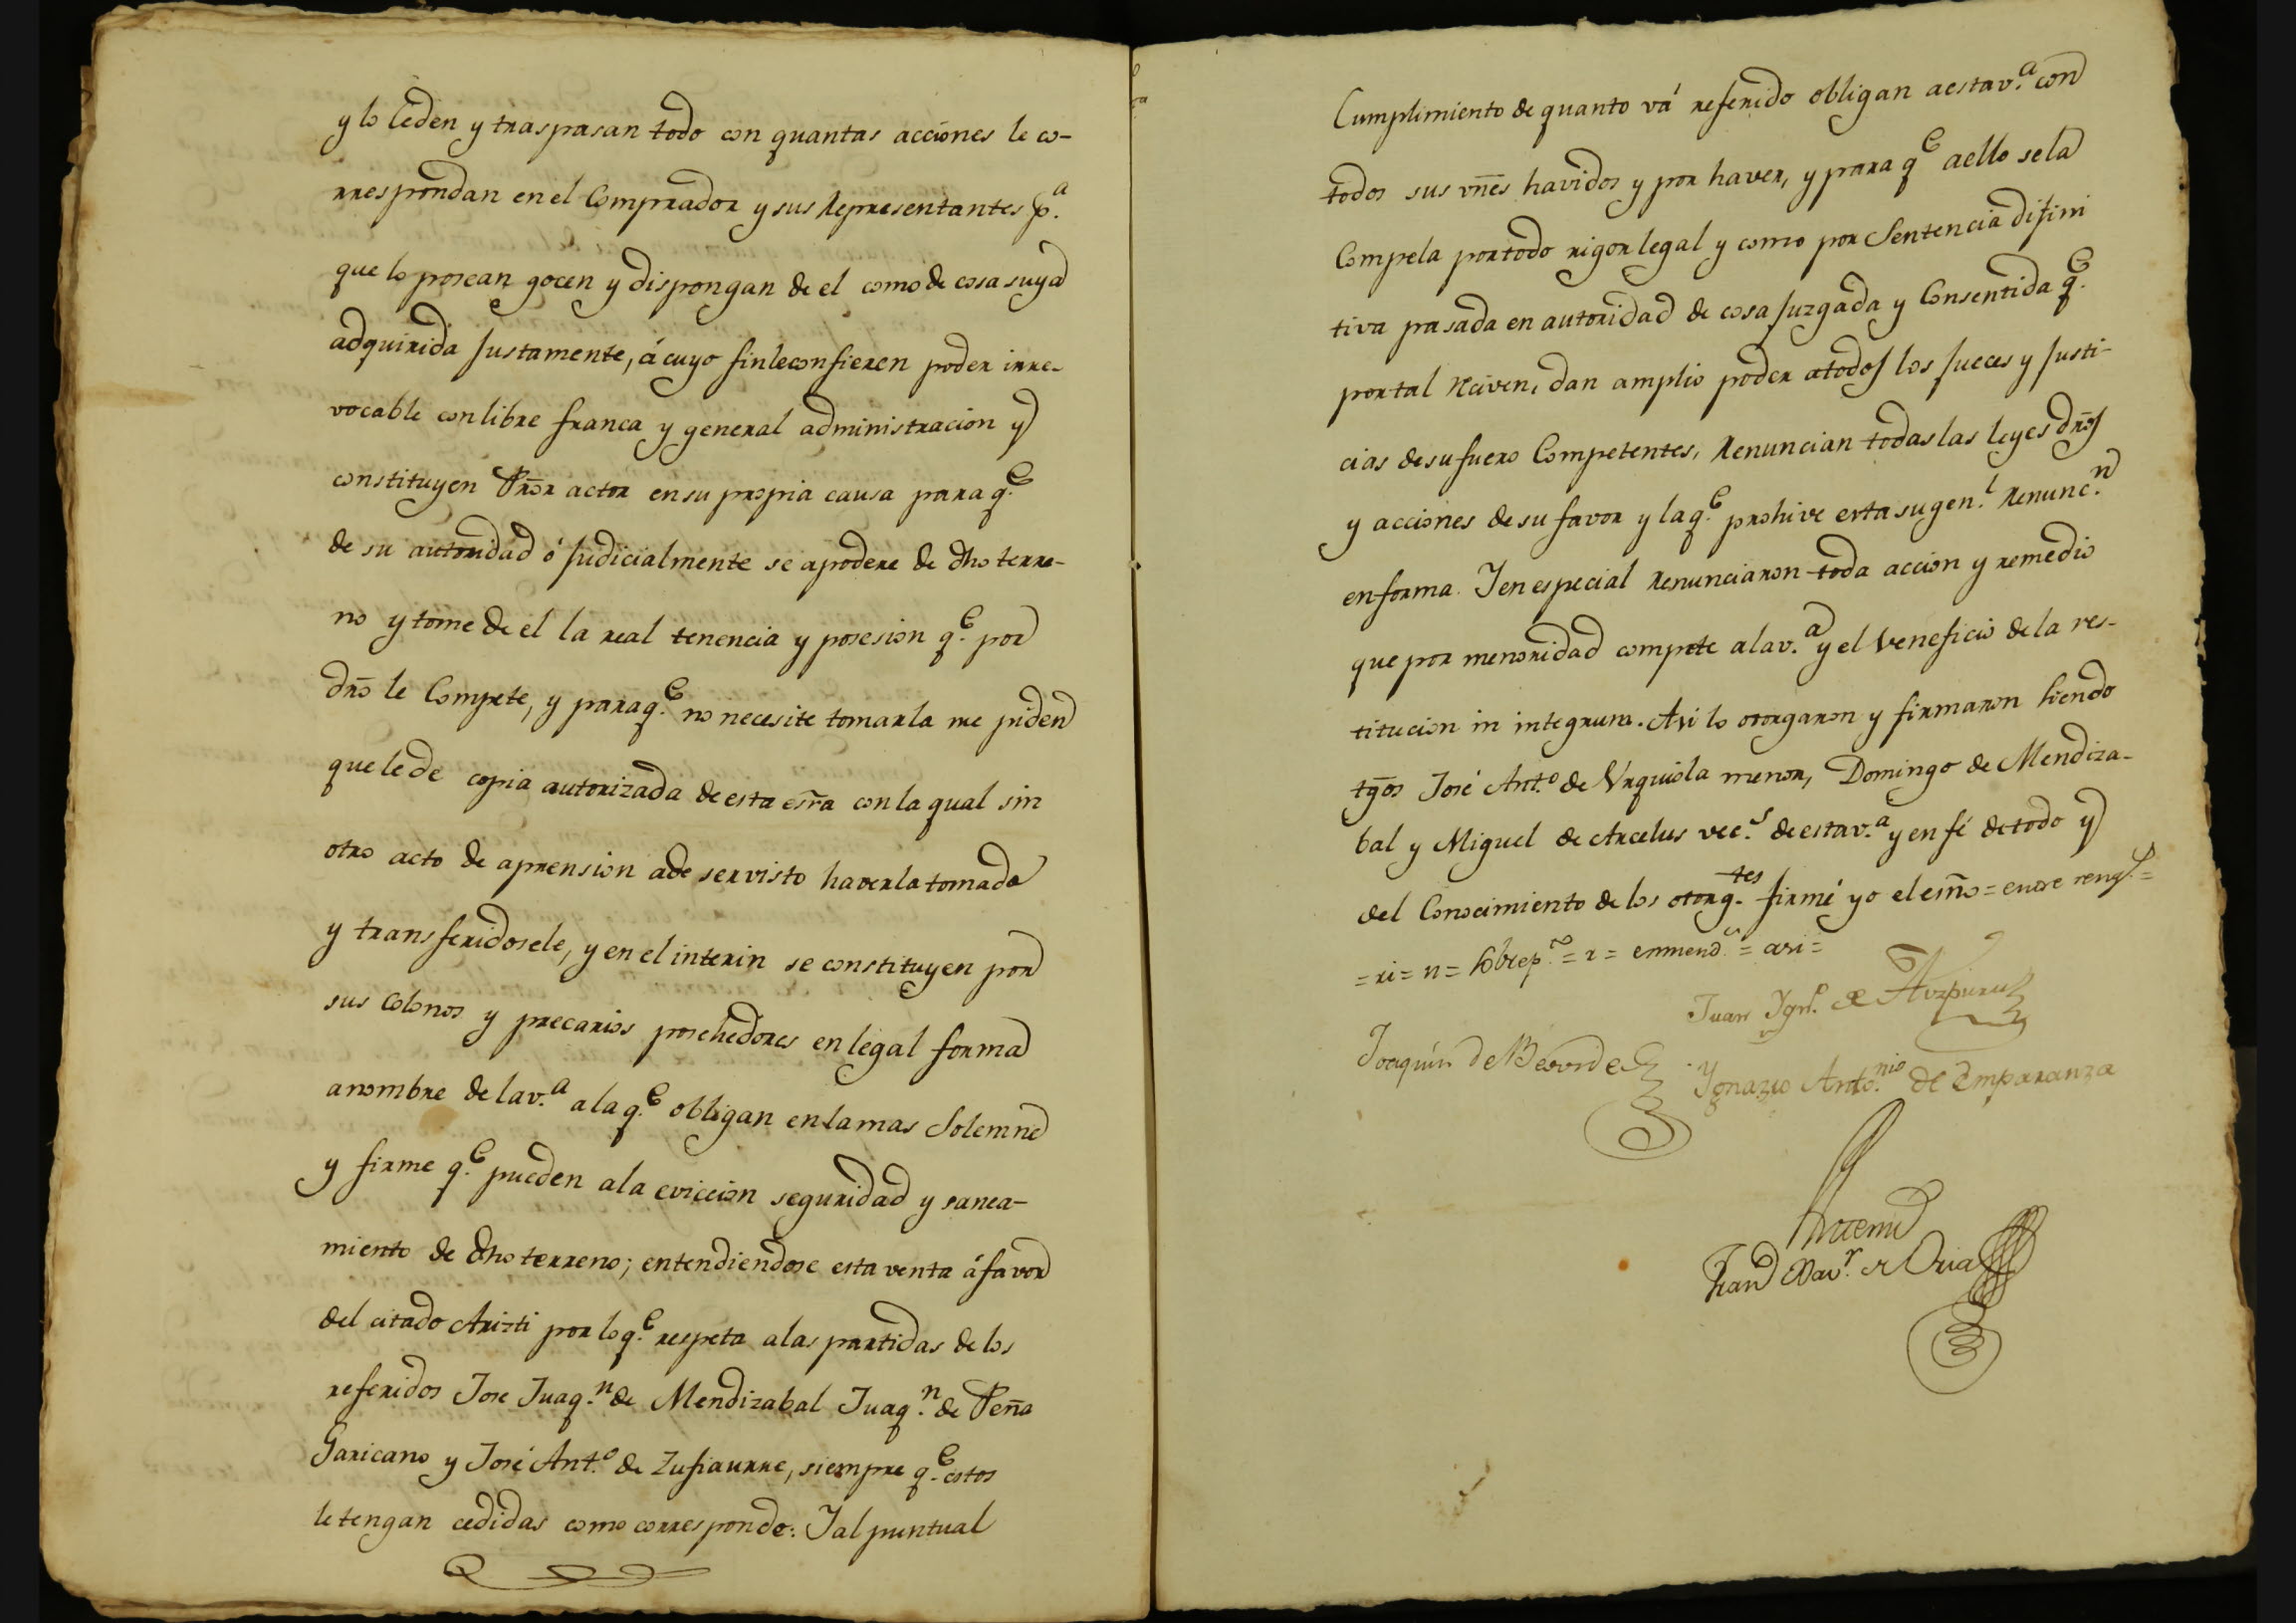 y lo Ceden y traspasan todo con quantas acciones le co-
rrespondan en el Comprador y sus Representantes p.ª
que lo posean gocen y dispongan de el como de cosa suya
adquirida Justamente, á cuyo fin le confieren poder irre-
vocable con libre franca y general administracion y
constituyen Pror actor en su propia causa para q.e
de su autoridad ó Judicialmente se apodere de dho terre-
no y tome de el la real tenencia y posesion q.e por
dro le Compete, y para q.e no necesite tomarla me piden
que le de copia autorizada de esta esra con la qual sin
otro acto de aprension ade ser visto haverla tomado
y transferidosele, y en el interin se constituyen por
sus Colonos y precarios poshedores en legal forma
a nombre de la v.ª a la q.e obligan en la mas Solemne
y firme q.e pueden a la eviccion seguridad y sanea-
miento de dho terreno; entendiendose esta venta á favor
del citado Aristi por lo q.e respeta a las partidas de los
referidos Jose Juaq.n de Mendizabal Juaq.n de Peña
Garicano y José Ant.o de Zufiaurre, siempre q.e estos
le tengan cedidas como corresponde: Y al puntual
Cumplimiento de quanto vá referido obligan a esta v.ª con
todos sus vnēs havidos y por haver, y para q.e a ello se la
Compela por todo rigor legal y como por Sentencia difini
tiva pasada en autoridad de cosa Juzgada y Consentida q.e
por tal Reciven, dan amplio poder a todos los Jueces y Justi-
cias de su fuero Competentes, Renuncian todas las leyes dros
y acciones de su favor y la q.e prohive esta su gen.l Renunc.n
en forma. Y en especial Renunciaron toda accion y remedio
que por menoridad compete a la v.ª y el veneficio de la res-
titucion in integrum. Asi lo otorgaron y firmaron siendo
tgos José Ant.o de Urquiola menor, Domingo de Mendiza-
bal y Miguel de Arcelus vec.s de esta v.ª y en fé de todo y
del Conocimiento de los otorg.tes firmé yo el esno = entre rengs =
= ri = n = Sobrep.to = r = enmend.o = asi =
Juan Ygn.o de Azpiruz
Joaquin de
Ygnazio Anto.nio de Emparanza
Antemi
Xav.r de Oria